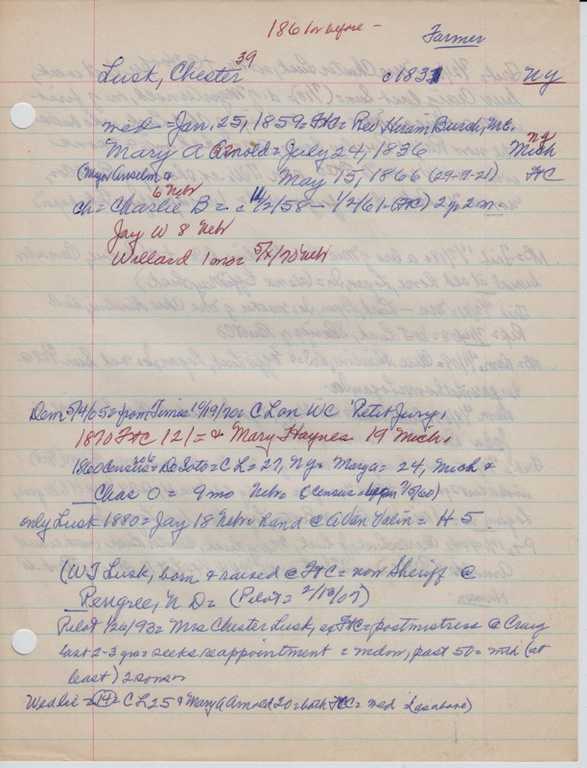 1861 or before -
Farmer
Lusk, Chester 39 c1831 NY
med - Jan. 25, 1859 = FtC = Rev Hiram Burch, M.E.
Mary A Arnold = July 24, 1836 NY Mich
(Major Anselm A May 15, 1866 (29-9-21) FtC
6 Nebr
ch = Charlie B = c 11/2/58 - 1/2/61 - FtC) 2y 2m.
Jay W 8 Nebr
Willard 1 mo = 5/x/70 Nebr
Dem 5/4/65 = from Times 10/19/70 = C L on WC Petit Jury,
1870 FtC 121 = & Mary Haynes 19 Mich.
1860 Census 206 = DeSoto = C L = 27, NY = Mary A = 24, Mich &
Chas O = 9 mo Nebr (census began 7/5/60)
only Lusk 1880 = Jay 18 Nebr hand @ A Van Valin = H-5
(WJ Lusk, born & raised @ FtC = now Sheriff @
Pengree, N D = (Pilot = 2/13/07)
Pilot 1/26/93 = Mrs Chester Lusk, of FtC = postmistress @ Craig
last 2-3 yrs = seeks reappointment = widow, past 50 = with (at
least) 2 sons
Wed lic = 14 = C L 25 & Mary A Arnold 20 = both FtC = med (as above)